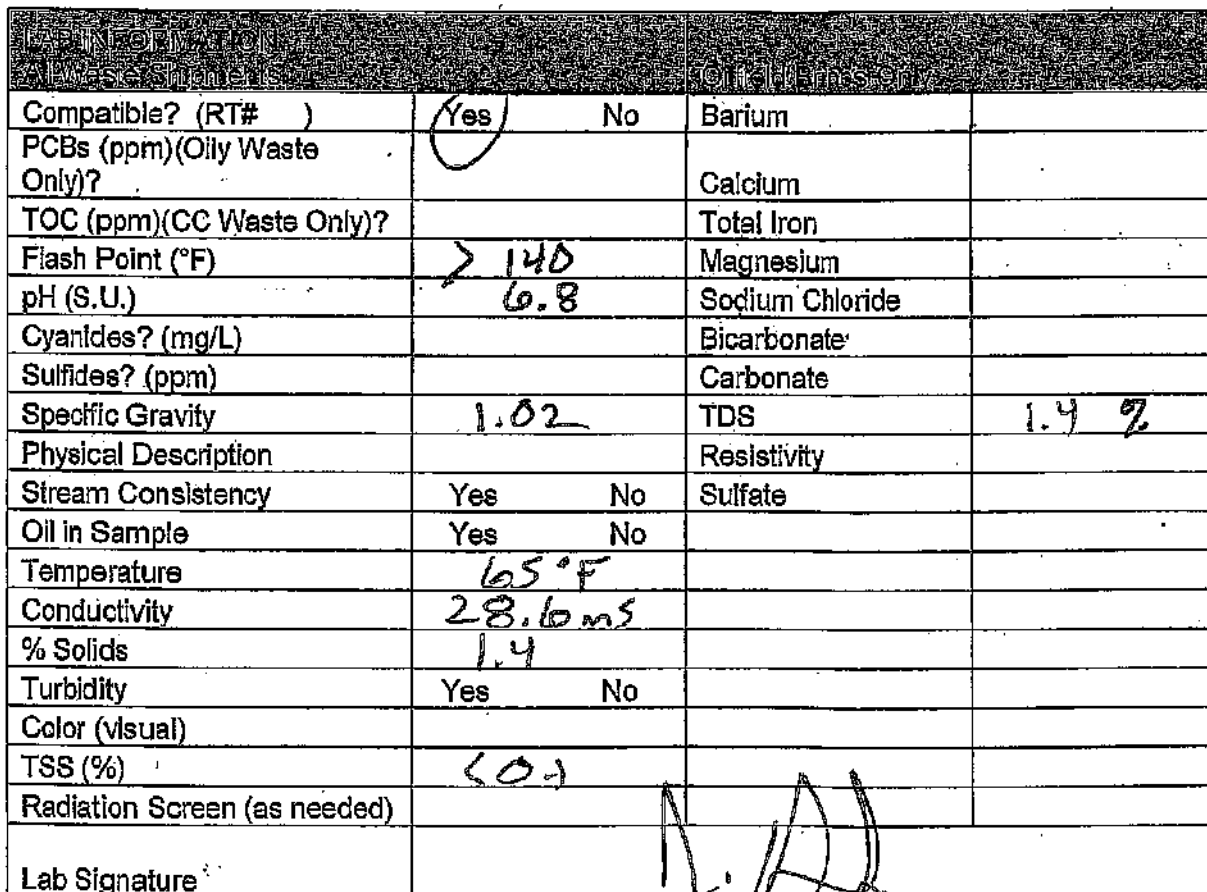 LAB INFORMATION
All Waste Shipments Oilfield Brines Only
Compatible? (RT# ) Yes No Barium
PCBs (ppm)(Oily Waste
Only)? Calcium
TOC (ppm)(CC Waste Only)? Total Iron
Flash Point (°F) > 140 Magnesium
pH (S.U.) 6.8 Sodium Chloride
Cyanides? (mg/L) Bicarbonate
Sulfides? (ppm) Carbonate
Specific Gravity 1.02 TDS 1.4 %
Physical Description Resistivity
Stream Consistency Yes No Sulfate
Oil in Sample Yes No
Temperature 65°F
Conductivity 28.6 ms
% Solids 1.4
Turbidity Yes No
Color (visual)
TSS (%)
Radiation Screen (as needed)
Lab Signature